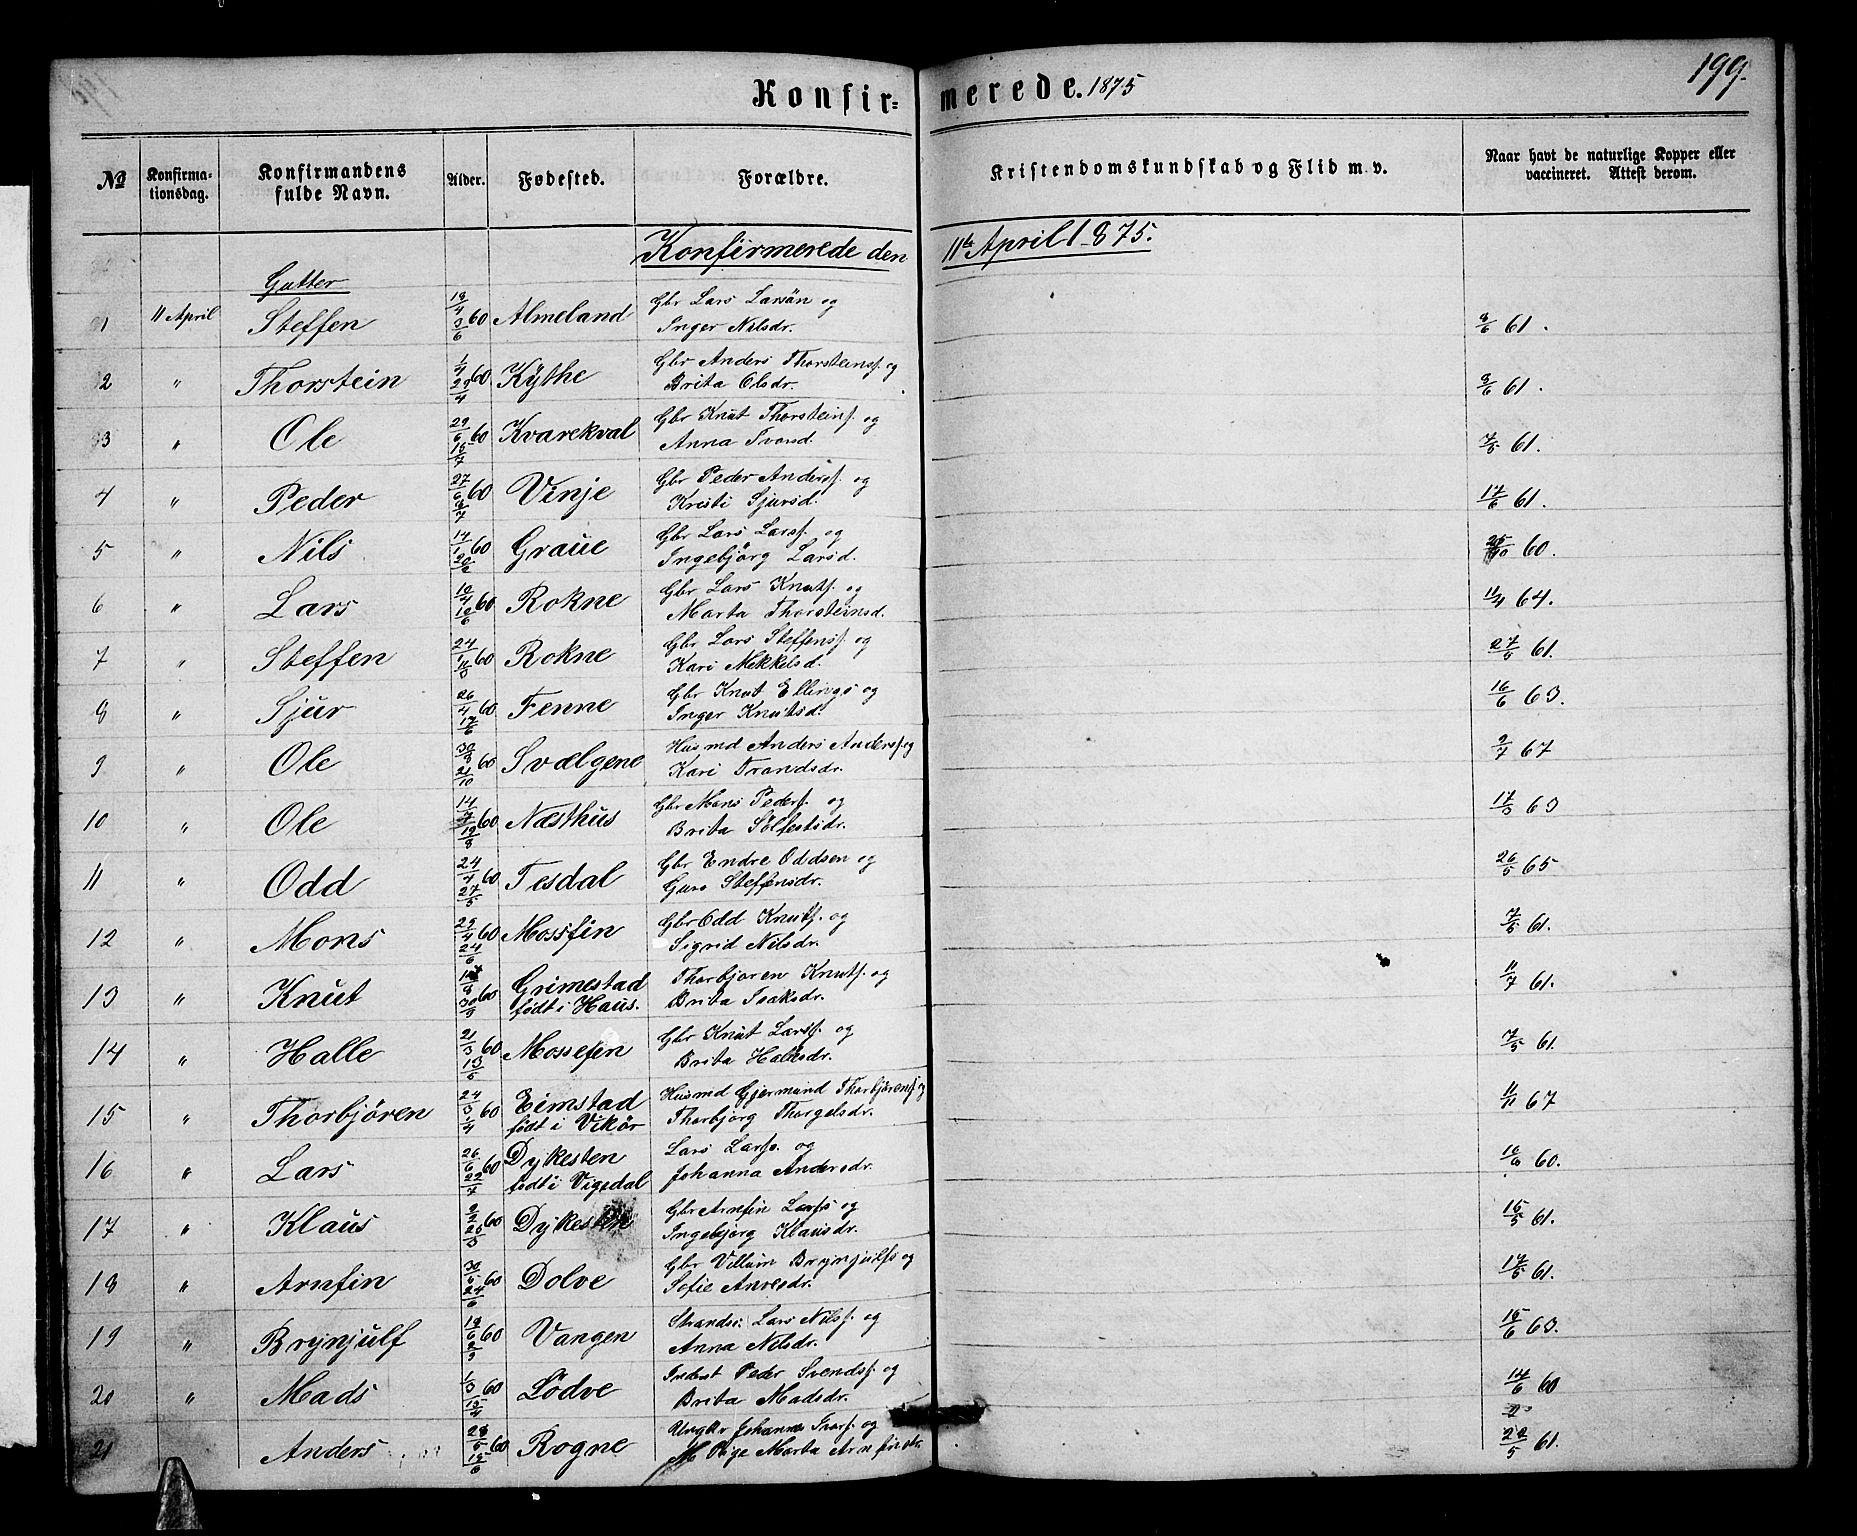 Konfir=merede. 1875
199.
No
Konfirma-
tionsdag.
Konfirmandens
fulde Navn.
Alder.
Fødested.
Forældre.
Kristendomskundskab og Flid m. v.
Naar havt de naturlige Kopper eller
vaccineret. Attest derom.
Konfirmerede den 11te April 1875.
Gutter
1 11 April Steffen 60 Almeland Gbr Lars Larsön og
Inger Nilsdr. 61.
2 " Thorstein 60 Kythe Gbr Anders Thorsteinsf. og
Brita Olsdr. 61.
3 " Ole 29/6 60 Kvarekval Gbr Knut Thorsteinf. og
Anna 61.
4 " Peder 27/6 60 Vinje Gbr Peder Andersf. og
Kristi Sjursd. 17/6 61.
5 " Nils 14/1 60 Graue Gbr Lars Larsf. og
Ingebjörg Larsd. 60.
6 " Lars 10/4 60 Rokne Gbr Lars Knutf. og
Marta Thorsteinsd. 11/4 64.
7 " Steffen 24/1 60 Rokne Gbr Lars Steffensf. og
Kari Mikkelsd. 61.
8 " Sjur 26/4 60 Fenne Gbr Knut Ellings og
Inger Knutsd. 16/6 63.
9 " Ole 60 Svælgene Husmd Anders Andersf. og
21/10
Kari Trandsdr. 2/7 67
10 " Ole 14/7 60 Næsthus Gbr Mons Pedersf. og
19/8
Brita Sölfestsdr. 17/3 63
11 " Odd 24/4 60 Tesdal Gbr Endre Oddsen og
27/5
Guro Steffensdr. 26/5 65
12 " Mons 60 Mossfin Gbr Odd Knutf. og
24/6
Sigrid Nilsdr. 61.
13 " Knut 60 Grimestad Thorbjoren Knutf. og
født i Haus. Brita Isaksdr. 11/7 61.
14 " Halle 21/3 60 Mossefen Gbr Knut Larsf. og
13/5
Brita Hallesdr. 7/5 61.
15 " Thorbjören 24/3 60 Eimstad Husmd Gjermund Thorbjörensf. og
1/4
født i Vikör Thorbjörg Thorgelsdr. 67
16 " Lars 26/6 60 Dykesten Lars Larsf. og
22/7
født i Vigedal Johanna Andersdr. 60.
17 " Klaus 60 Dykesten Gbr Arnfin Larsf og
Ingebjörg Klausdr. 61.
18 " Arnfin 60 Dolve Gbr Villum Brynjulfs og
24/6
Sofie 61.
19 " Brynjulf 60 Vangen Lars Nilsf. og
Anna Nilsdr. 63.
20 " Mads 1/3 60 Lödve Inderst Peder Svendsf. og
Brita Madsdr. 14/6 60
21 Anders 60 Rogne Ungkr Johannes og
Pige Marta 61.